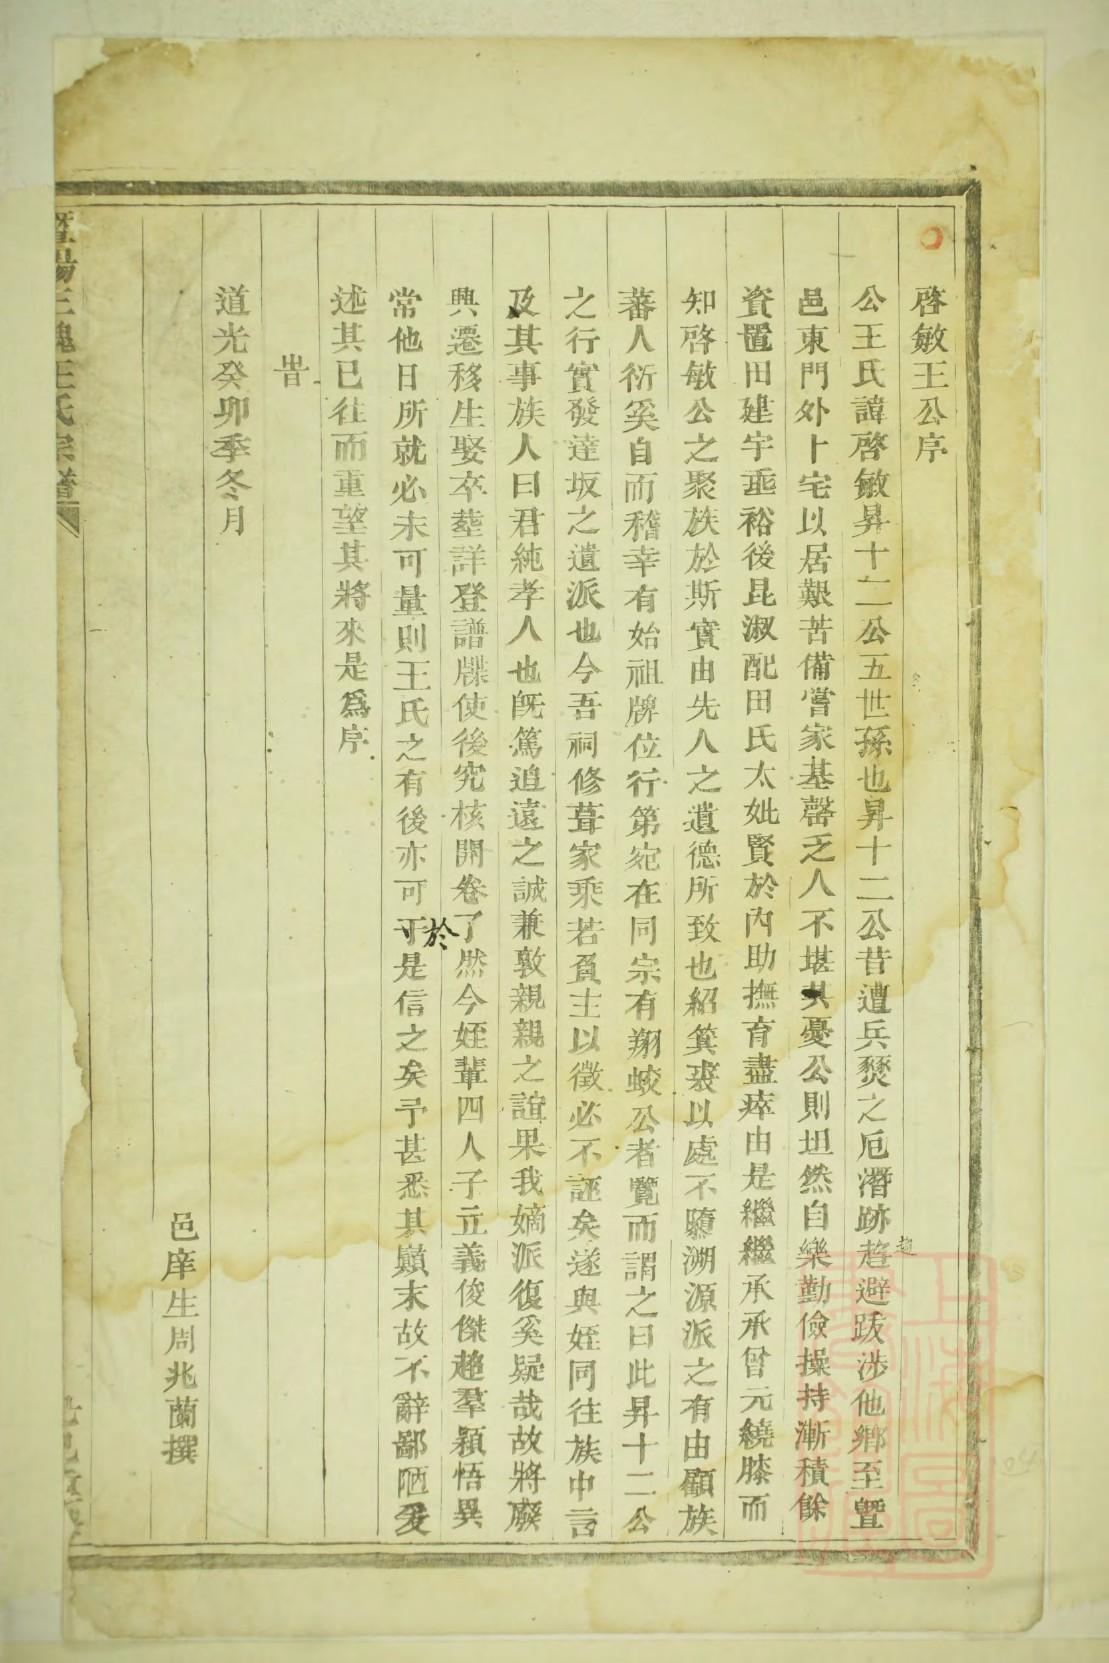 啓敏王公序
公王氏諱啓敏昇十二公五世孫也昇十二公昔遭兵燹之厄潛跡趋避跋涉他鄉至暨
趨
邑東門外卜宅以居艱苦備嘗家基罄乏人不堪其憂公則坦然自樂勤儉操持漸積餘
資置田建宇垂裕後昆淑配田氏太妣賢於內助撫育盡瘁由是繼繼承承曾元繞膝而
知啓敏公之聚族於斯實由先人之遺德所致也紹箕裘以處不隳溯源派之有由顧族
蕃人衍奚自而稽幸有始祖牌位行第宛在同宗有翔蛟公者覽而謂之曰此昇十二公
之行實發達坂之遺派也今吾祠修葺家乘若負主以徵必不誣矣遂與姪同往族中言
及其事族人曰君純孝人也既篤追遠之誠兼敦親親之誼果我嫡派復奚疑哉故將廢
興遷移生娶卒塟詳登譜牒使後究核開卷了然今姪輩四人子立義俊傑趨羣穎悟異
常他日所就必未可量則王氏之有後亦可于是信之矣予甚悉其巔末故不辭鄙陋爰
於
述其已往而重望其將來是爲序
旹
道光癸卯季冬月
邑庠生周兆蘭撰
暨陽王氏宗譜
上海圖書館藏